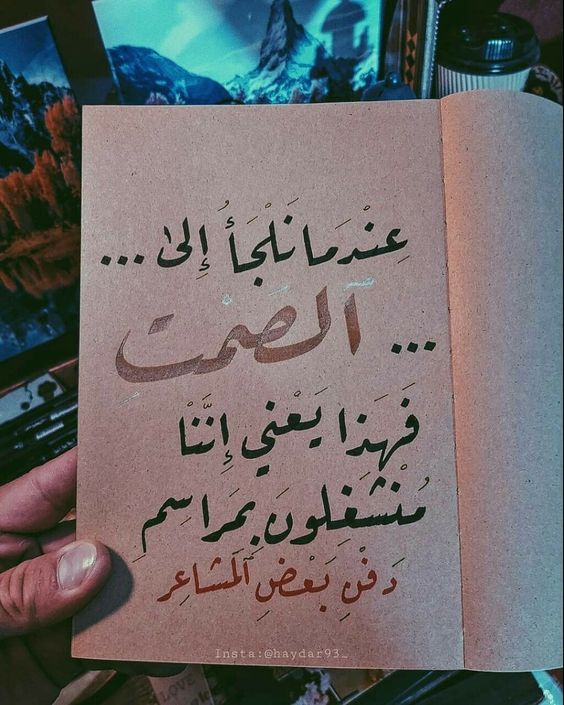 عِنْدَمَا نَلْجَأُ إِلىٰ ...
... الصَمْت
فَهَذا يَعْني إِنَّنْا
مُنْشَغِلونَ بِمَراسِمِ
دَفْنِ بَعْضِ ٱلْمَشاعِر
Insta:@haydar93_